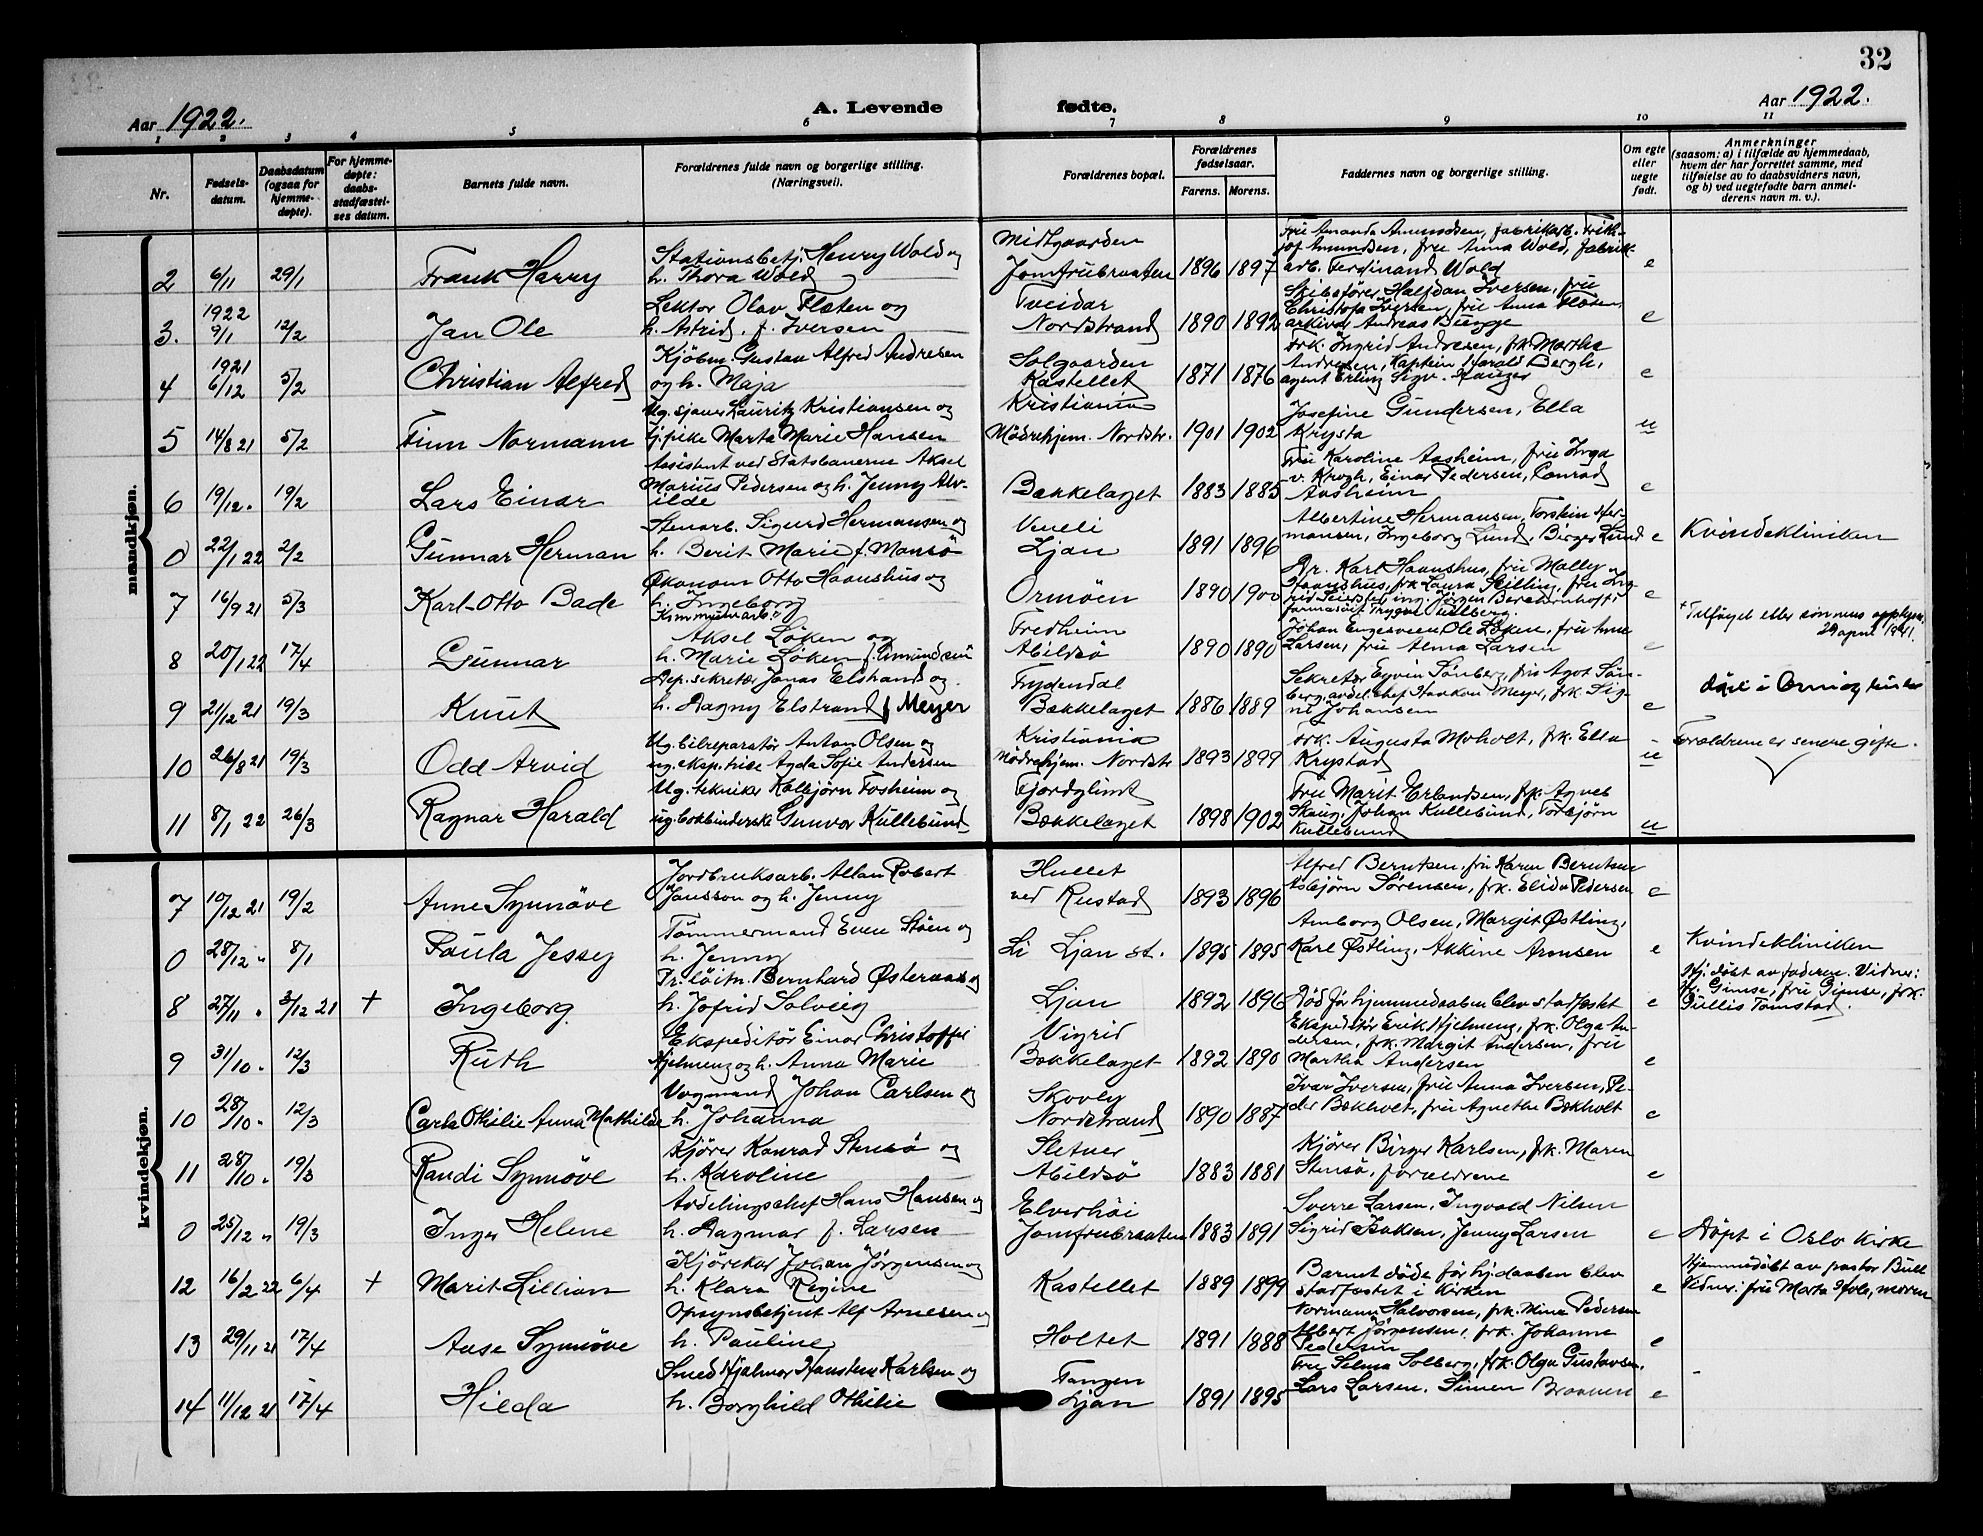 32
Aar 1922.
A. Levende
fødte.
Aar 1922.
1 2 3 4 5 6 7 8 9 10 11
Nr.
Fødsels-
datum.
Daabsdatum
(ogsaa for
hjemme-
døpte).
For hjemme-
døpte:
daabs-
stadfæstel-
ses datum.
Barnets fulde navn.
Forældrenes fulde navn og borgerlige stilling.
(Næringsvei).
Forældrenes bopæl.
Forældrenes
fødselsaar.
Farens. Morens.
Faddernes navn og borgerlige stilling.
Om egte
eller
uegte
født.
Anmerkninger
(saasom: a) i tilfælde av hjemmedaab,
hvem der har forrettet samme, med
tilføielse av to daabsvidners navn,
og b) ved uegtefødte barn anmel-
derens navn m. v.).
mandkjøn.
2 6/11 29/1 Frank Harry
Stationsbetj. Henry Wold og
h. Thora Wold
Midtgaarden
Jomfrubraaten 1896 1897
Fru Amanda Amundsen, fabrikarb. Frith-
jof Amundsen, fru Anna Wold, fabrik-
arb. Ferdinand Wold e
1922
3. 9/1 12/2 Jan Ole
Lektor Olav Flæten og
h. Astrid, f. Iversen
Tveidar
Nordstrand 1890 1892
Skibsfører Halfdan Iversen, fru
Christofa Iversen, fru Anna Flæten,
arkivar Andreas Bugge e
1921
4 6/12 5/2 Christian Alfred
Kjøbm. Gustav Alfred Andresen
og h. Maja
Solgaarden
Kastellet 1871 1876
Frk. Ingrid Andresen, frk. Martha
Andresen, Kaptein Harald Bergh,
agent Erling Sigv. Hauger e
5 14/8 21 5/2 Finn Normann
Ug. sjauer Lauritz Kristiansen og
tj.pike Marta Marie Hansen
Kristiania
Mødrehjem. Nordstr. 1901 1902
Josefine Gundersen, Ella
Krysta u
6 19/12 " 19/2 Lars Einar
Assistent ved Statsbanerne Aksel
Marius Pedersen og h. Jenny Alv-
ilde
Bækkelaget 1883 1885
Fru Karoline Aasheim, fru Inga
v. Krogh, Einar Pedersen, Conrad
Aasheim e
0 22/1 22 2/2 Gunnar Herman
Stenarb. Sigurd Hermansen og
h. Berit Marie f. Mansø
Veneli
Ljan 1891 1896
Albertine Hermansen, Torstein Her-
mansen, Ingeborg Lund, Birger Lund e Kvindekliniken
7 16/9 21 5/3 Karl-Otto Bade
Økonom Otto Haaushus og
h. Ingeborg
Ormøen 1890 1900
Dr. Karl Haaushus, fru Molly
Haaushus, frk Laura Skilling, fru
e
8 20/1 22 17/4 Gunnar
Aksel Løken og
h. Marie Løken f. Amundsen
Fredheim
Abildsø 1890 1890
Johan Engesveen, Ole Løken, fru Anne
Larsen, fru Alma Larsen e
+ Tilføyet efter
april 1941.
9 21/12 21 19/3 Knut
Dep. sekretær Jonas Elstrand og
h. Dagny Elstrand f Meyer
Frydendal
Bækkelaget 1886 1889
Sekretær Eyvin Sønberg, fru Agot Søn-
berg, avdel.chef Haakon Meyer, frk. Sig-
ne Johansen e
10 26/8 21 19/3 Odd Arvid
Ug. bilreparatør Anton Olsen og
ug. eksp.trice Agda Sofie Andersen
Kristiania
Mødrehjem. Nordstr 1893 1899
Frk. Augusta Moholt, frk. Ella
Krystad u Forældrene er senere gifte.
11 8/1 22 26/3 Ragnar Harald
Ug. tekniker Kolbjørn Fosheim og
ug. bokbinderske Gunvor Kullebund
Fjordglimt
Bækkelaget 1898 1902
Fru Marit Erlandsen, frk. Agnes
Skaug, Johan Kullebund, Torbjørn
Kullebund u
kvindekjøn.
7 10/12 21 19/2 Anne Synnøve
Jordbruksarb. Allan Robert
Jansson og h. Jenny
Hullet
ved Rustad 1893 1896
Alfred Berntsen, fru Karen Berntsen
Asbjørn Sørensen, frk. Elida Pedersen e
0 28/12 " 8/1 Paula Jessy
Tømmermand Even Støen og
h. Jenny
Li Ljan st. 1895 1895
Amborg Olsen, Margit Østling,
Karl Østling, Akkine Aronsen e Kvindekliniken
8 27/11 " 3/12 21 + Ingeborg
Pr. løitn. Bernhard Østeraas og
h. Jofrid Solveig
Ljan 1892 1896
Død før hjemmedaaben blev stadfæstet e
Hj. døbt av faderen. Vidner:
H. Gimse, fru Gimse, frk.
Gullis Tomstad.
9 31/10 " 12/3 Ruth
Ekspeditør Einar Christoffer
Hjelmeng og h. Anna Marie
Vigrid
Bækkelaget 1892 1890
Ekspeditør Erik Hjelmeng, frk. Olga An-
dersen, frk. Margit Andersen, fru
Martha Andersen e
10 28/10 " 12/3 Carla Othilie Anna Mathilde
Vognmand Johan Carlsen og
h. Johanna
Skovly
Nordstrand 1890 1887
Ivar Iversen, fru Anna Iversen, Pe-
der Bækholt, fru Agnethe Bækholt e
11 28/10 " 19/3 Randi Synnøve
Kjører Konrad Stensø og
h. Karoline
Sletner
Abildsø 1883 1881
Kjører Birger Karlsen, frk. Maren
Stensø, forældrene e
0 25/12 " 19/3 Inger Helene
Avdelingschef Hans Hansen og
h. Dagmar f. Larsen
Elverhøi
Jomfrubraaten 1883 1891
Sverre Larsen, Ingvald Nilsen
Sigrid Isaksen, Jenny Larsen e Døpt i Oslo kirke
12 16/2 22 6/4 + Marit Lillian
Kjørekar Johan Jørgensen og
h. Klara Regine
Kastellet 1889 1899
Barnet døde før hj.daaben blev
stadfæstet i kirken e
Hjemmedøbt av pastor Bull
Vidner: fru Marta Hvols, moren
13 29/11 21 17/4 Aase Synnøve
Opsynsbetjent Alf Arnesen og
h. Pauline
Holtet 1891 1888
Normann Halvorsen, frk. Mina Pedersen
Albert Jørgensen, frk. Johanne
Pedersen e
14 11/12 21 17/4 Hilda
Smed Hjalmar Karlsen og
h. Borghild Othilie
Tangen
Ljan 1891 1895
Fru Selma Solberg, frk. Olga Gustavsen,
Lars Larsen, Simen Braaten e